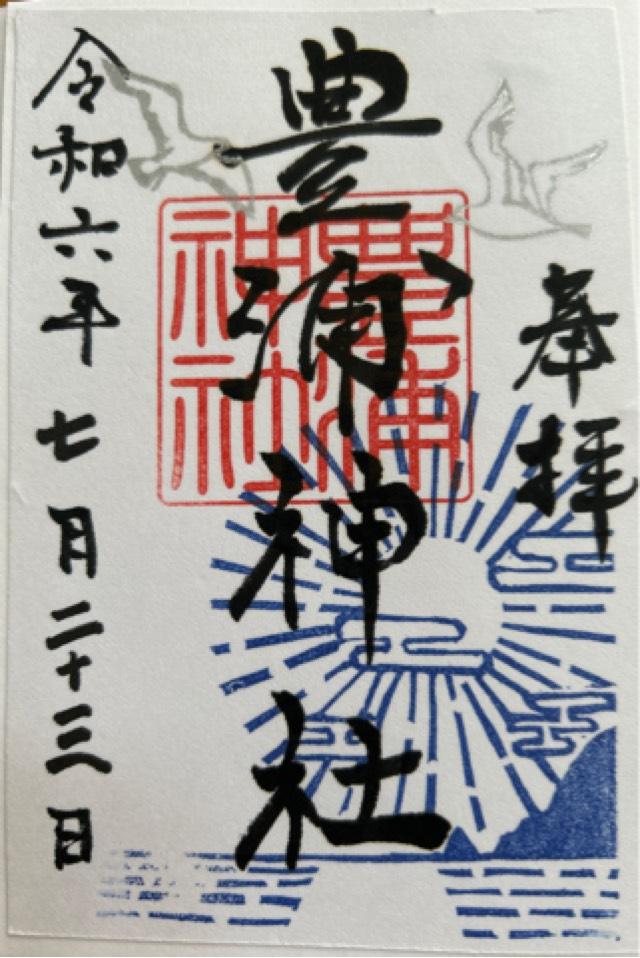 奉拝
豊浦神社
豊浦
神社
令和六年 七月二十三日